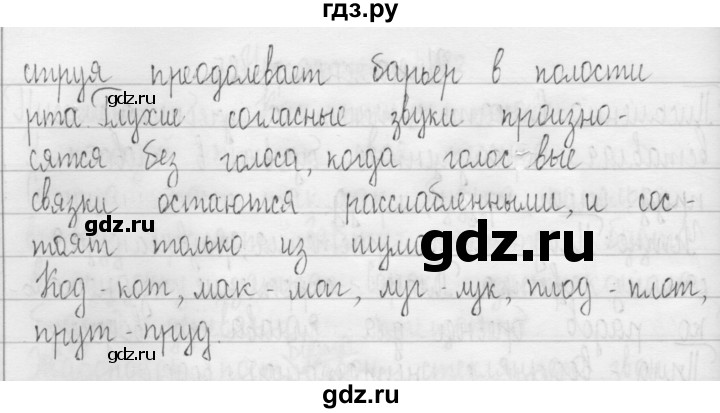 гдз.ру
струя преодолевает барьер в полости
gdz.ru
рта. Глухие согласные звуки произно-
сятся без голоса, когда голос-вые
gdz.ru
связки остаются расслабленными, и сос-
gdz.ru
таят только из шума
gdz.ru
Код - кот, мак - маг, луг - лук, плод - плот,
gdz.ru
прут - пруд.
gdz.ru
gdz.ru